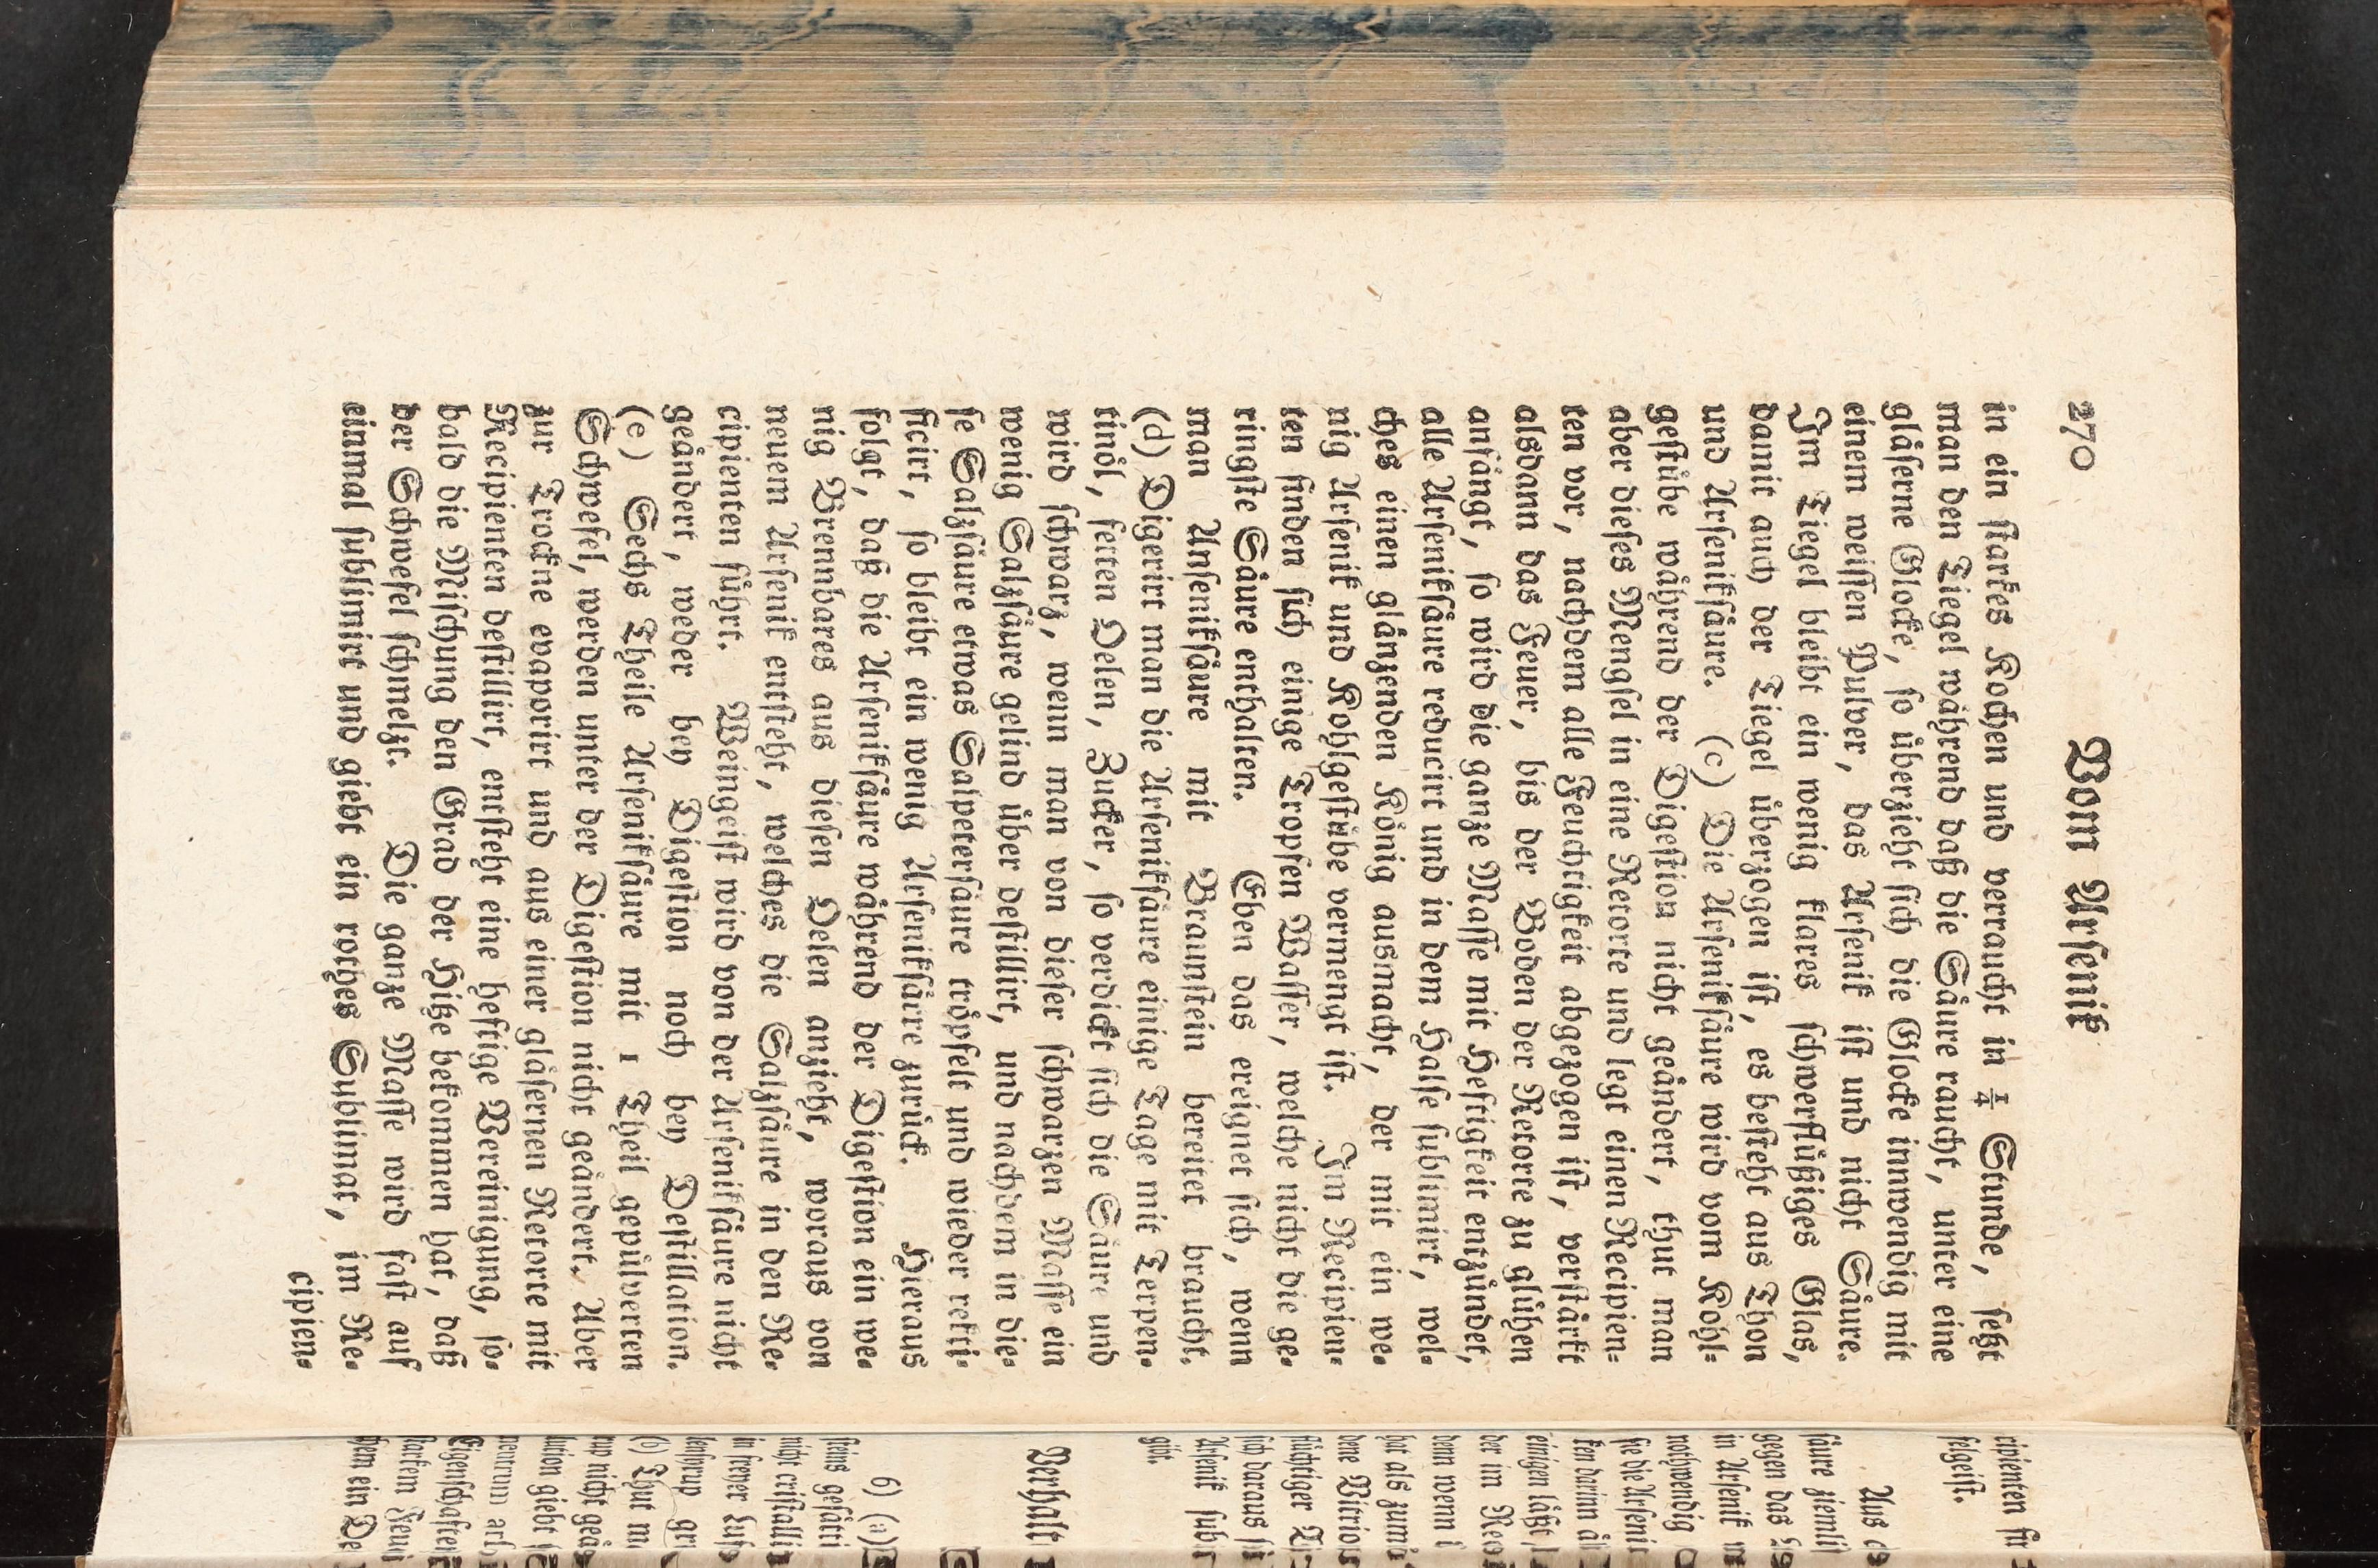 270 Vom Arſenik
in ein ſtarkes Kochen und verraucht in ¼ Stunde, ſetzt
man den Tiegel während daß die Säure raucht, unter eine
gläſerne Glocke, ſo überzieht ſich die Glocke inwendig mit
einem weiſſen Pulver, das Arſenik iſt und nicht Säure.
Im Tiegel bleibt ein wenig klares ſchwerflüßiges Glas,
damit auch der Tiegel überzogen iſt, es beſteht aus Thon
und Arſenikſäure. (c) Die Arſenikſäure wird vom Kohl-
geſtübe während der Digeſtion nicht geändert, thut man
aber dieſes Mengſel in eine Retorte und legt einen Recipien-
ten vor, nachdem alle Feuchtigkeit abgezogen iſt, verſtärkt
alsdann das Feuer, bis der Boden der Retorte zu glühen
anfängt, ſo wird die ganze Maſſe mit Heftigkeit entzündet,
alle Arſenikſäure reducirt und in dem Halſe ſublimirt, wel-
ches einen glänzenden König ausmacht, der mit ein we-
nig Arſenik und Kohlgeſtübe vermengt iſt. Im Recipien-
ten finden ſich einige Tropfen Waſſer, welche nicht die ge-
ringſte Säure enthalten. Eben das ereignet ſich, wenn
man Arſenikſäure mit Braunſtein bereitet braucht.
(d) Digerirt man die Arſenikſäure einige Tage mit Terpen-
tinöl, fetten Oelen, Zucker, ſo verdickt ſich die Säure und
wird ſchwarz, wenn man von dieſer ſchwarzen Maſſe ein
wenig Salzſäure gelind über deſtillirt, und nachdem in die-
ſe Salzſäure etwas Salpeterſäure tröpfelt und wieder rekti-
ficirt, ſo bleibt ein wenig Arſenikſäure zurück. Hieraus
folgt, daß die Arſenikſäure während der Digeſtion ein we-
nig Brennbares aus dieſen Oelen anzieht, woraus von
neuem Arſenik entſteht, welches die Salzſäure in den Re-
cipienten führt. Weingeiſt wird von der Arſenikſäure nicht
geändert, weder bey Digeſtion noch bey Deſtillation.
(e) Sechs Theile Arſenikſäure mit 1 Theil gepülverten
Schwefel, werden unter der Digeſtion nicht geändert. Aber
zur Trockne evaporirt und aus einer gläſernen Retorte mit
Recipienten deſtillirt, entſteht eine heftige Vereinigung, ſo-
bald die Miſchung den Grad der Hitze bekommen hat, daß
der Schwefel ſchmelzt. Die ganze Maſſe wird faſt auf
einmal ſublimirt und giebt ein rothes Sublimat, im Re-
cipien-
cipienten
felgeiſt.
Aus
ſäure
gegen das
in Arſenik
nothwendig
ſie die Arſenik
ken darinn
einigen läßt
der im
dem wenn
hat als
dene Vitriol
flüchtiger
ſich daraus
Arſenik
gilt
Verhalt
6) (a)
ſeins
nicht
in freyer
(b) Thut
nicht
giebt
Eigenſchaften
ſtarkem Feu
chem ein